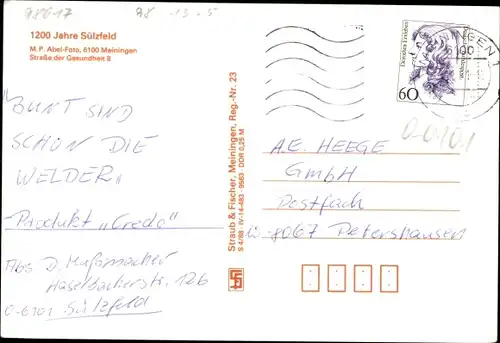 98617
78 -13-5
1200 Jahre Sülzfeld
M. P. Abel-Foto, 6100 Meiningen
Straße der Gesundheit 8
BUNT SIND
SCHON DIE
WELDER"
Produkt "Creda"
Abs D. Hußmacher
Haselbacherstr. 12b
O-6101 Sülzfeld
Straub & Fischer, Meiningen, Reg.-Nr. 23
S 4/88 IV-14-483 9583 DDR 0,25 M
MEININGEN 1
6100
60
0-0101
A.E. HEEGE
GmbH
Postfach
W-8067 Petershausen